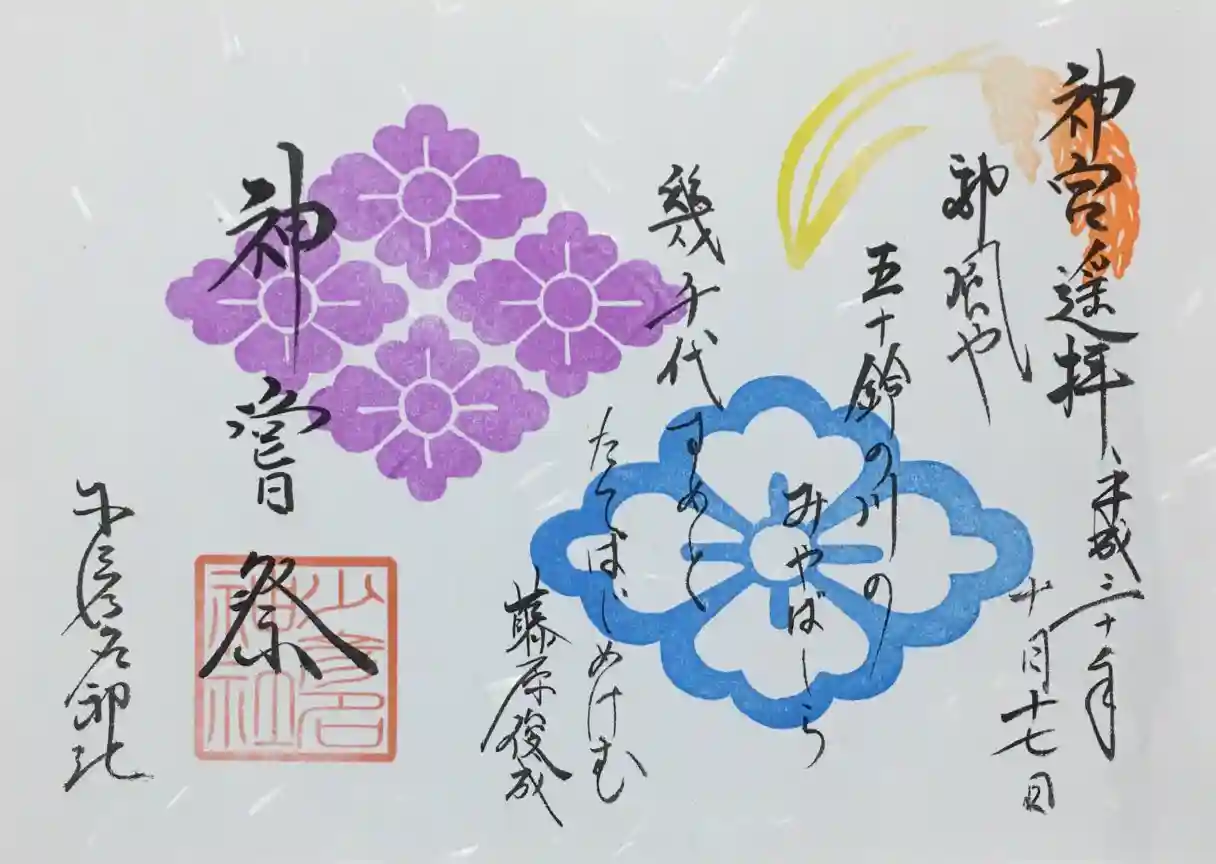 神宮遥拝、平成三十年
十月十七日
神風や
五十鈴の川の
みやばしら
幾千代すめと
たてはじめけむ
藤原俊成
神嘗祭
少彦名
神社
少彦名神社